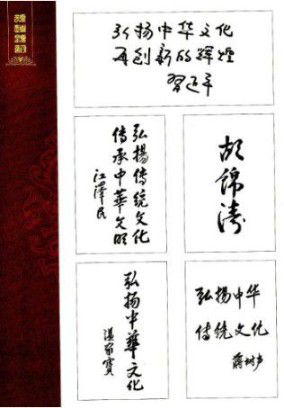 弘扬中华文化
再创新的辉煌
習近平
弘揚傳統文化
傳承中華文明
江澤民
胡錦濤
弘扬中華文化
温家寳
弘扬中华
传统文化